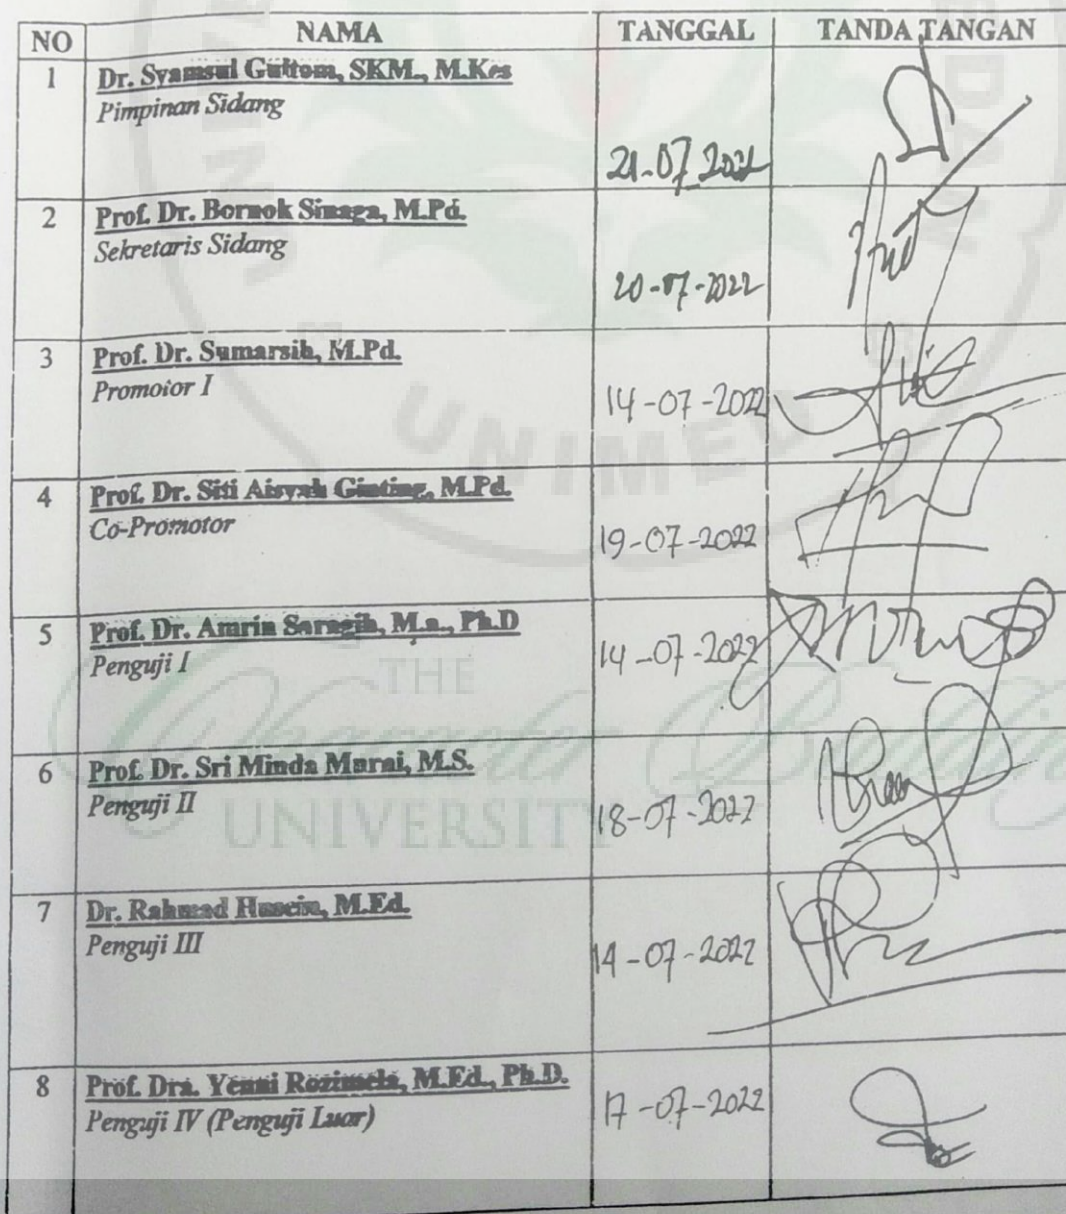 NO NAMA TANGGAL TANDA TANGAN
1 Dr. Syamsul Gultom, SKM., M.Kes
Pimpinan Sidang
21-07-2022
2 Prof. Dr. Bornok Sinaga, M.Pd.
Sekretaris Sidang
20-07-2022
3 Prof. Dr. Sumarsih, M.Pd.
Promotor I
14-07-2022
4 Prof. Dr. Siti Aisyah Ginting, M.Pd.
Co-Promotor
19-07-2022
5 Prof. Dr. Amrin Saragih, M.a., Ph.D
Penguji I
14-07-2022
6 Prof. Dr. Sri Minda Murni, M.S.
Penguji II
18-07-2022
7 Dr. Rahmad Husein, M.Ed.
Penguji III
14-07-2022
8 Prof. Dra. Yenni Rozimela, M.Ed., Ph.D.
Penguji IV (Penguji Luar)
17-07-2022
UNIMED
THE
Character Building
UNIVERSITY